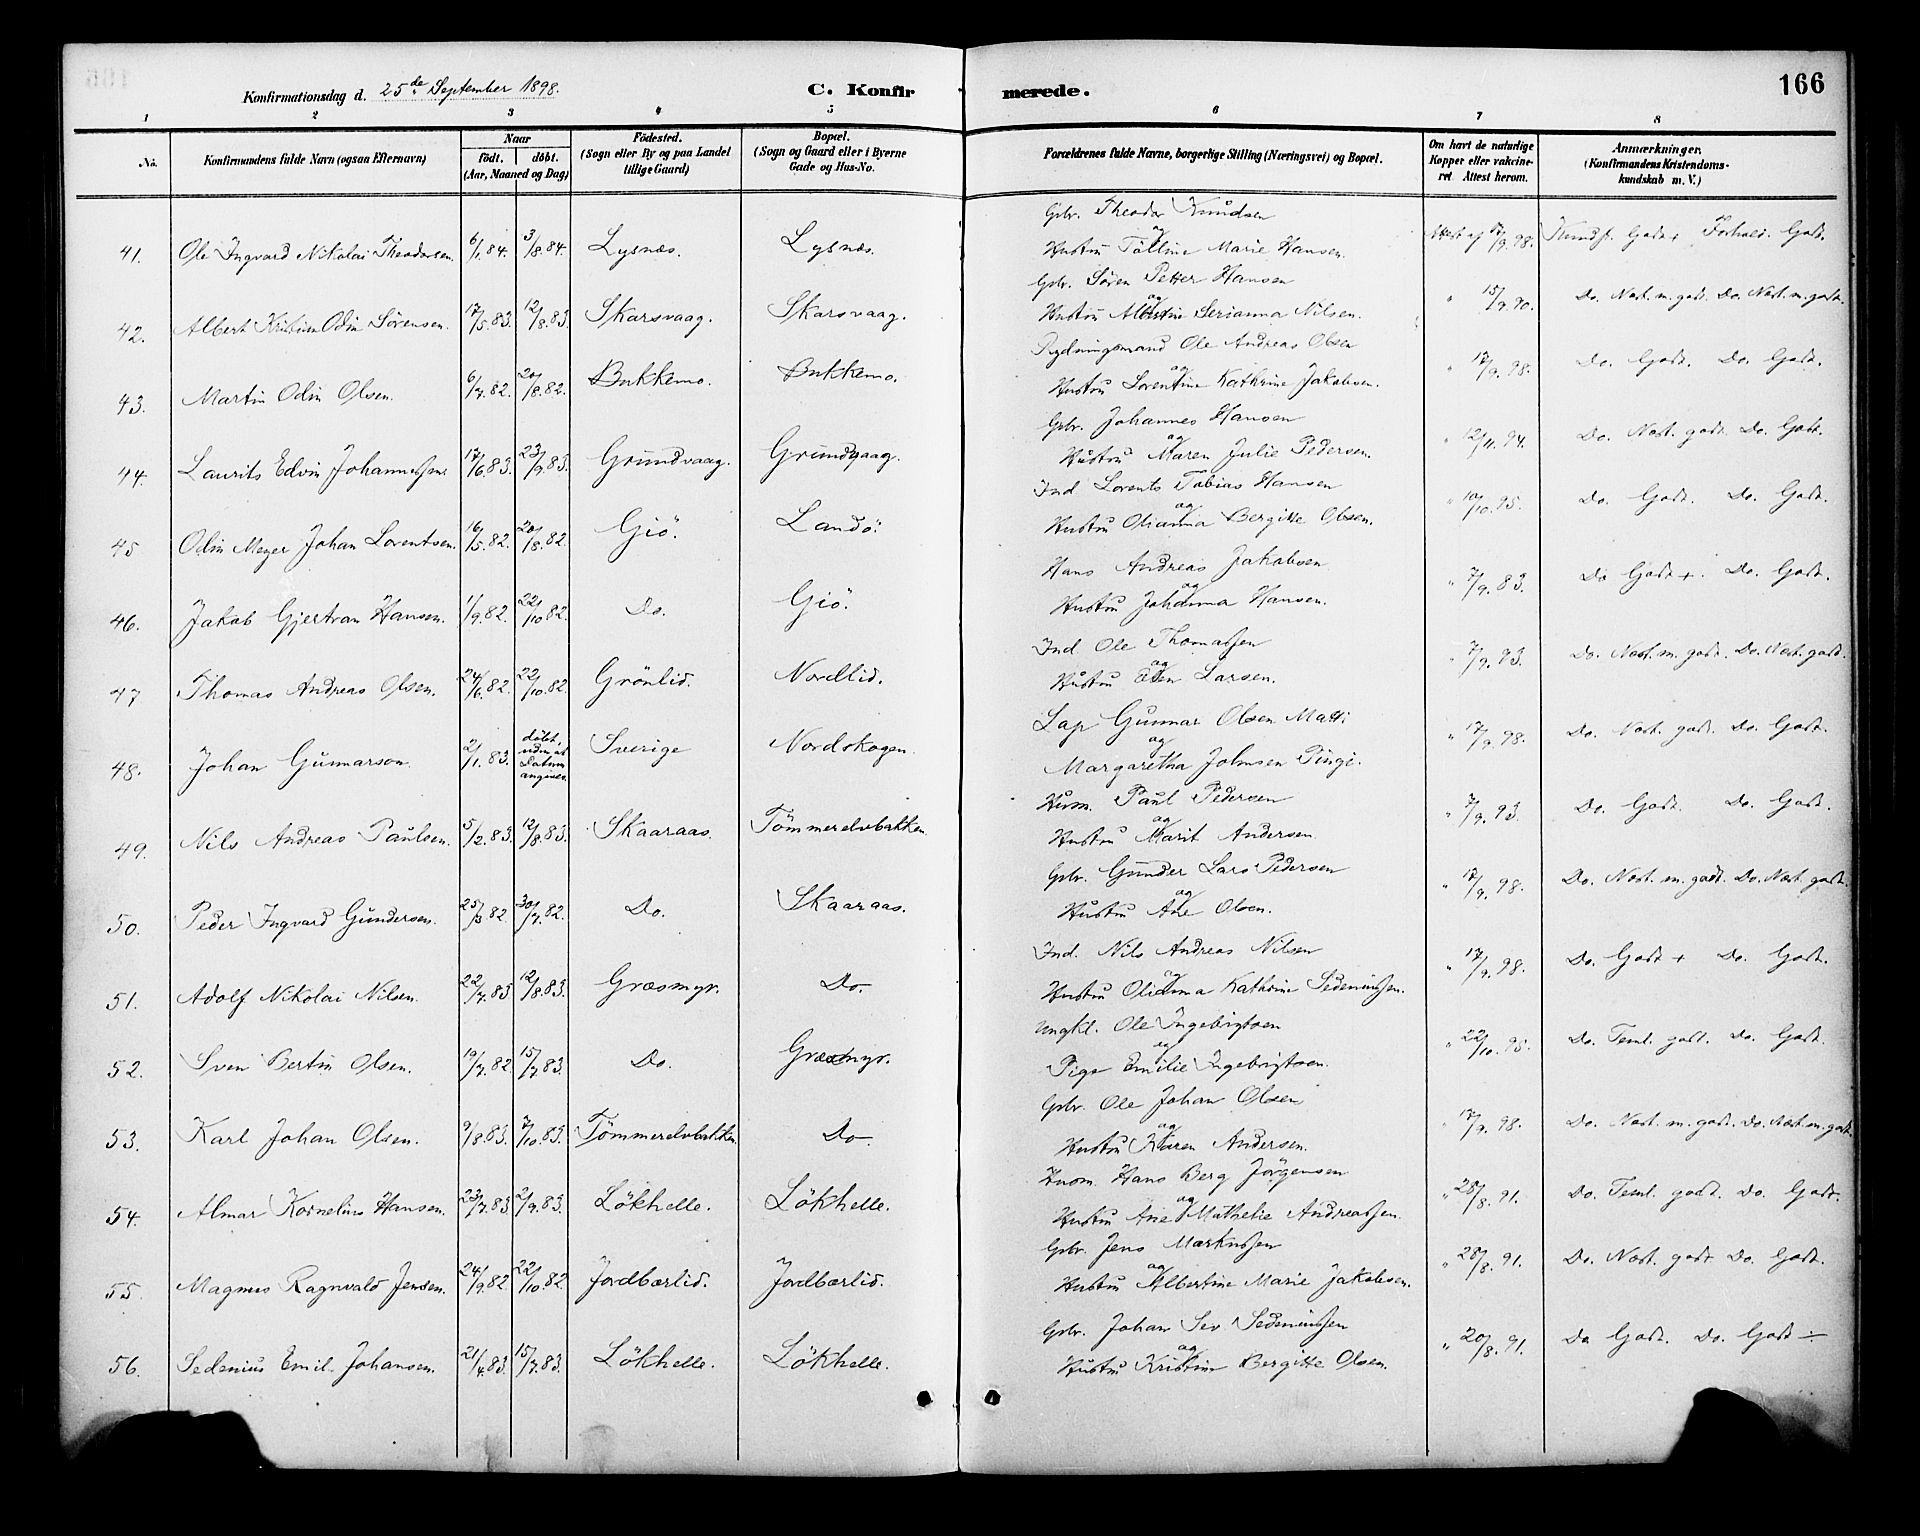 Konfirmationsdag d. 25de September 1898.
C. Konfirmerede.
166
1 2 3 4 5 6 7 8
No.
Konfirmandens fulde Navn (ogsaa Efternavn)
Naar
födt. döbt.
(Aar, Maaned og Dag)
Födested.
(Sogn eller By og paa Landet
tillige Gaard)
Bopæl.
(Sogn og Gaard eller i Byerne
Gade og Hus-No.
Forældrenes fulde Navne, borgerlige Stilling (Næringsvei) og Bopæl.
Om havt de naturlige
Kopper eller vakcine-
ret Attest herom.
Anmærkninger.
(Konfirmandens Kristendoms-
kundskab m. V.)
Gbr. Theodor Knudsen
41. Ole Ingvard Nikolai Theodorsen. 6/1.84. 3/8.84. Lysnæs. Lysnæs. og Hustru Tölline Marie Hansen. Attest af 17/9.98. Kundsk. Godt + Forhold. Godt.
Gbr. Sören Petter Hansen
42. Albert Kristian Odin Sörensen. 17/5.83. 12/8.83. Skarsvaag. Skarsvaag. og Hustru Albertine Serianna Nilsen. " 15/9.90. Do. Næst. m. godt. Do. Næst. m. godt.
Rydningsmand Ole Andreas Olsen
43. Martin Odin Olsen. 6/7.82. 20/8.82. Bukkemo. Bukkemo. og Hustru Lorentine Kathrine Jakobsen. " 17/9.98. Do. Godt. Do. Godt.
Gbr. Johannes Hansen
44. Laurits Edvin Johannessen. 17/6.83. 23/9.83. Grundvaag. Grundvaag. og Hustru Maren Julie Pedersen. " 12/11.94. Do. Næst. godt. Do. Godt.
Ind. Lorents Tobias Hansen
45 Odin Meyer Johan Lorentsen. 16/5.82. 20/8.82. Giö. Landö. og Hustru Olianna Bergitte Olsen. " 10/10.95. Do. Godt. Do. Godt.
Hans Andreas Jakobsen
46. Jakob Gjertran Hansen. 1/9.82. 22/10.82. Do. Giö. og Hustru Johanna Hansen. " 7/9.83. Do Godt +. Do. Godt.
Ind Ole Thomassen
47. Thomas Andreas Olsen. 24/6.82. 22/10.82. Grönlid. Nordlid. og Hustru Elen Larsen. " 7/9.93. Do. Næst. m. godt. Do. Næst. godt.
Lap Gunnar Olsen Matti
48. Johan Gunnarson. 2/1.83. döbt, uden at Datum angives. Sverige Nordskogen. og Margaretha Johnsen Pingi. " 17/9.98. Do. Næst. godt. Do. Godt.
Husm. Paul Pedersen
49. Nils Andreas Paulsen. 5/2.83. 12/8.83. Skaaraas. Tömmerelvbakken. og Hustru Marit Andersen. " 7/9.93. Do. Godt. Do. Godt.
Gbr. Gunder Lars Pedersen
50. Peder Ingvard Gundersen. 25/3.82. 30/7.82. Do. Skaaraas. og Hustru Ane Olsen. " 17/9.98. Do. Næst. m. godt. Do. Næst. godt.
Ind. Nils Andreas Nilsen
51. Adolf Nikolai Nilsen. 22/7.83 12/8.83. Græsmyr. Do. og Hustru Olianna Kathrine Sedeniussen. " 17/9.98. Do. Godt + Do. Godt.
Ungkl. Ole Ingebrigtsen
52. Sven Bertin Olsen. 19/7.82. 15/7.83. Do. Græsmyr. og Pige Emilie Ingebrigtsen. " 22/10.95. Do. Teml. godt. Do. Godt.
Gbr. Ole Johan Olsen
53. Karl Johan Olsen. 9/8.83. 7/10.83. Tömmerelvbakken. Do. og Hustru Karen Andersen. " 17/9.98. Do. Næst. m. godt. Do. Næst. m. godt.
Husm. Hans Berg Jörgensen
54. Almar Kornelius Hansen. 23/7.83. 2/9.83. Lökhelle. Lökhelle. og Hustru Ane Mathelie Andreassen. " 28/8.91. Do. Teml. godt. Do. Godt.
Gbr. Jens Markussen
55. Magnus Ragnvald Jensen. 24/9.82. 22/10.82. Jordbærlid. Jordbærlid. og Hustru Albertine Marie Jakobsen. " 28/8.91. Do. Næst. godt Do. Godt.
Gbr. Johan Sev Sedeniussen
56. Sedenius Emil Johansen. 21/4.83. 15/7.83. Lökhelle. Lökhelle. og Hustru Kristine Bergitte Olsen. " 20/8.91. Do Godt. Do. Godt ÷